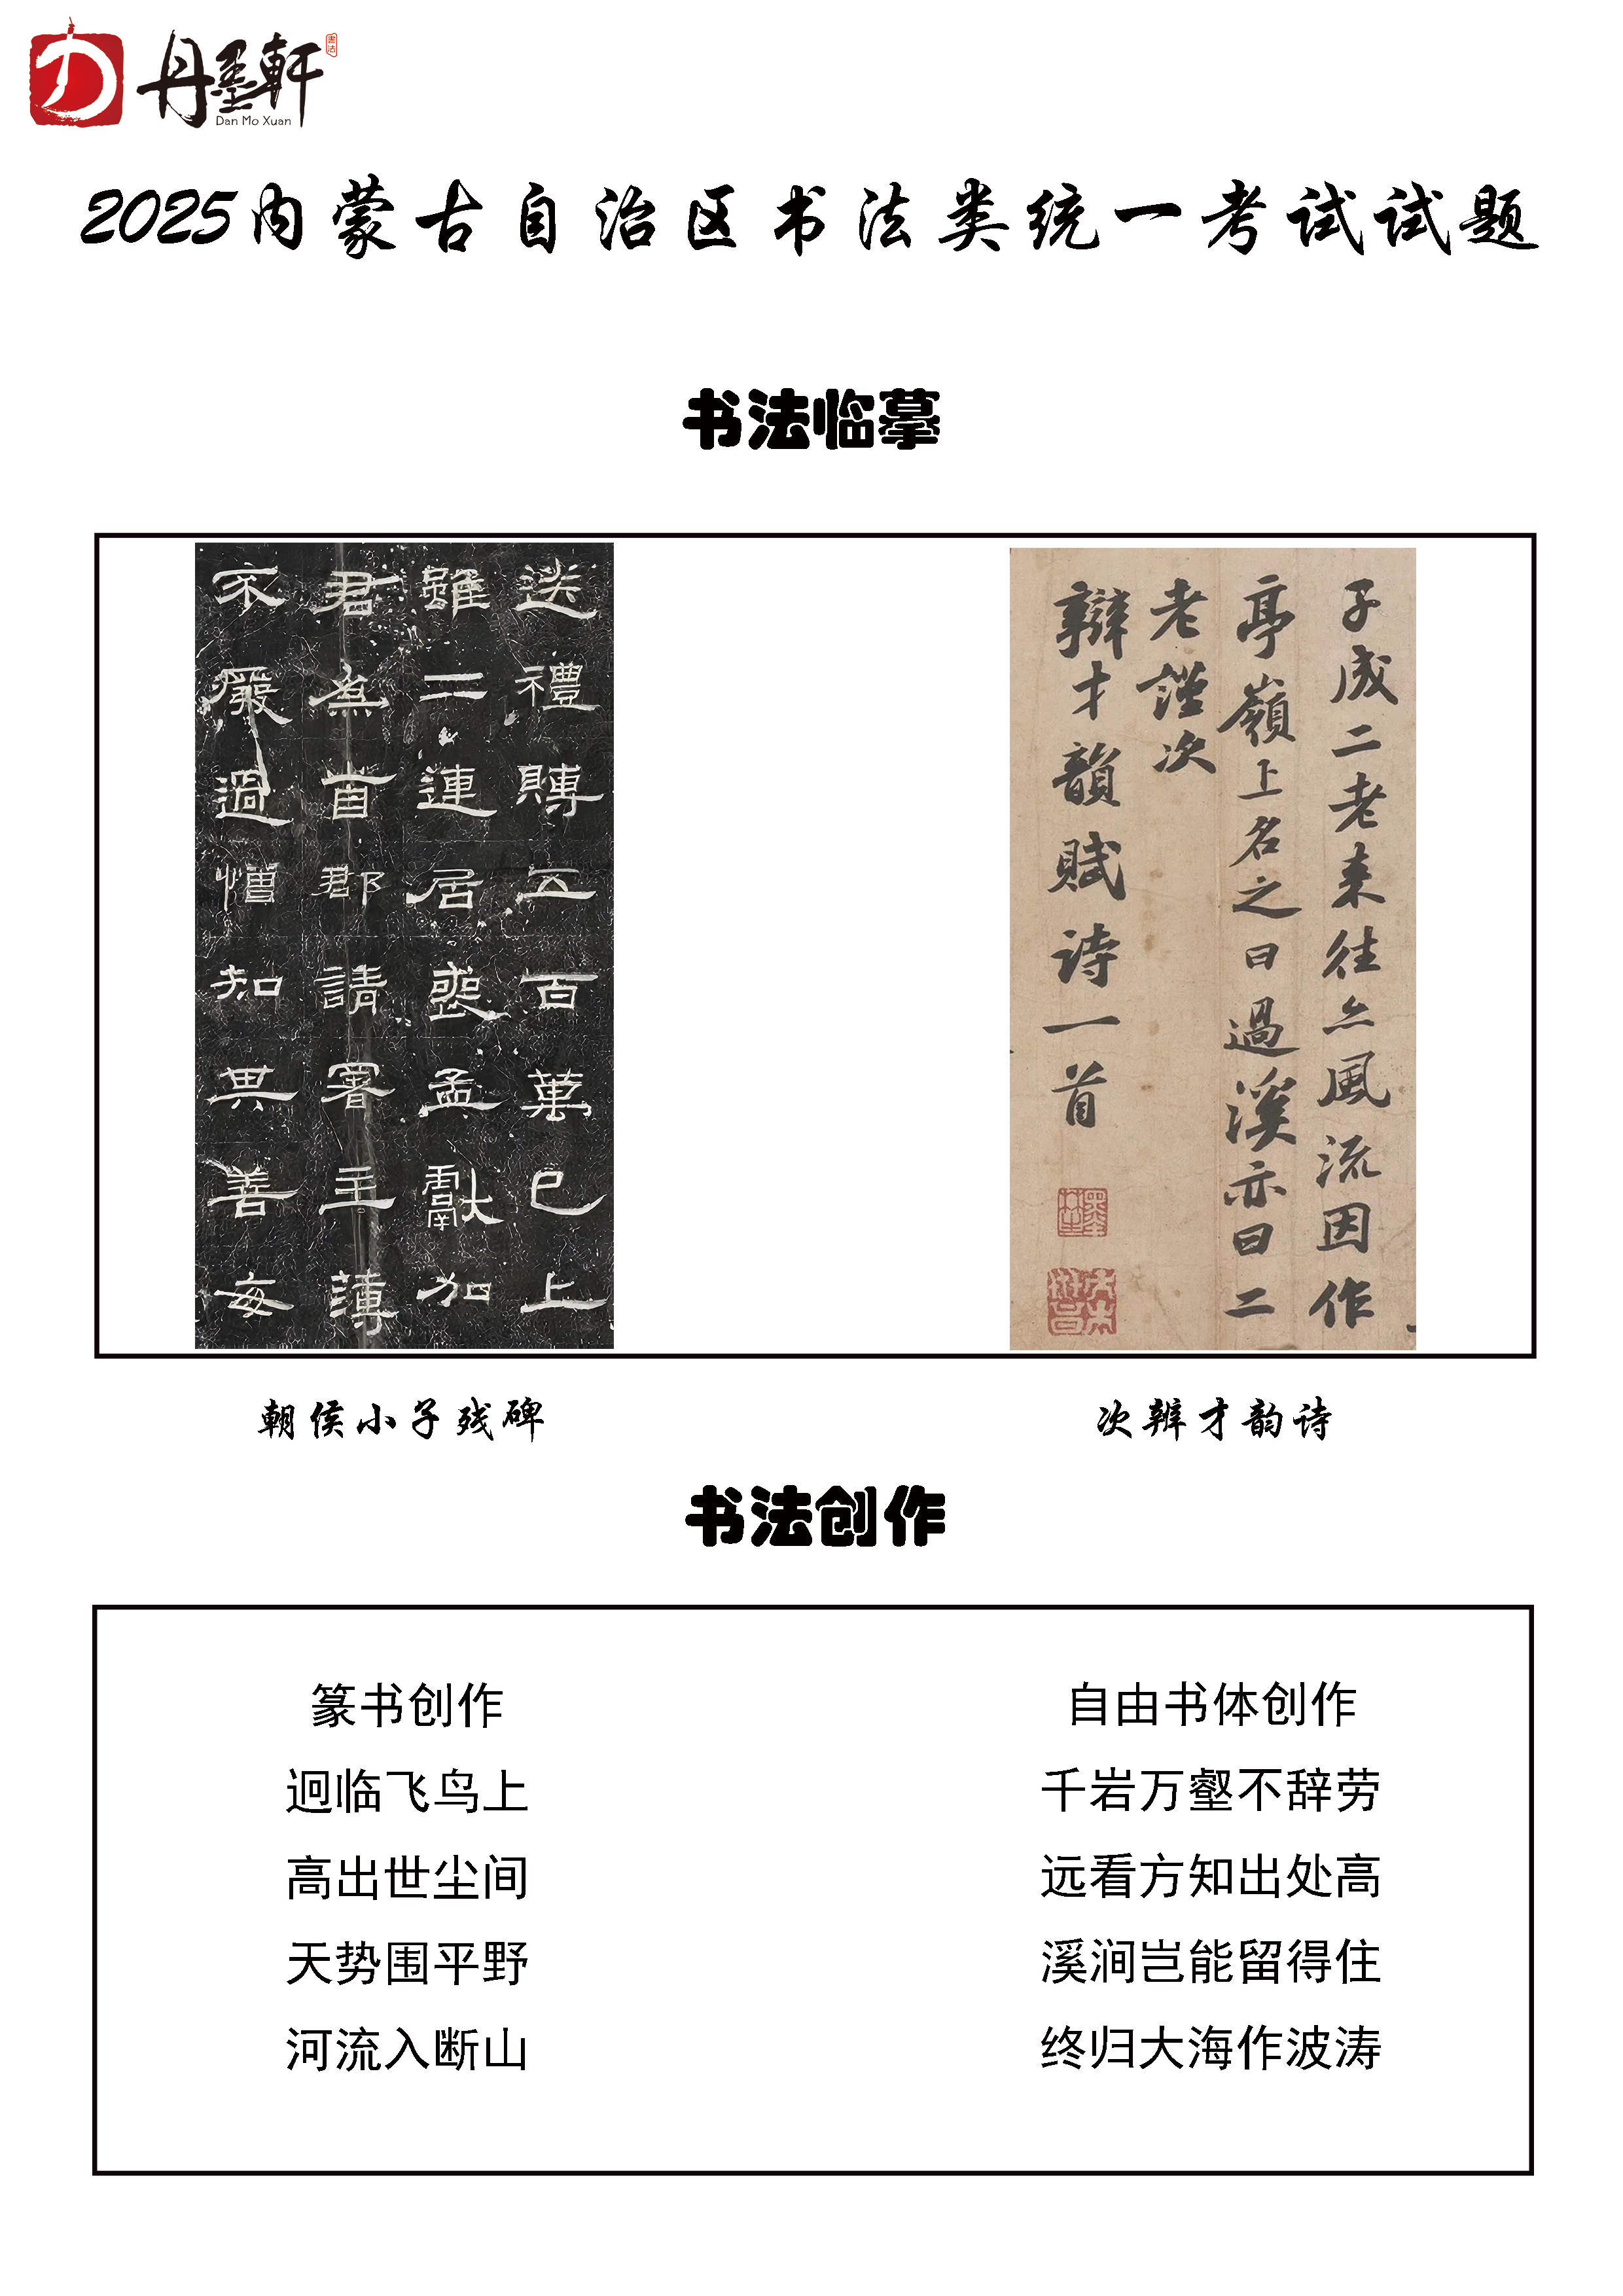 丹墨軒
Dan Mo Xuan
书法
2025内蒙古自治区书法类统一考试试题
书法临摹
送禮賻五百萬已上
雖二連居喪孟獻加
君郡請署主薄
不嚴過憎知其善每
子成二老来往亦風流因作
亭嶺上名之曰過溪亦曰二
老謹次
辯才韻賦诗一首
朝侯小子残碑
次辨才韵诗
书法创作
篆书创作
迥临飞鸟上
高出世尘间
天势围平野
河流入断山
自由书体创作
千岩万壑不辞劳
远看方知出处高
溪涧岂能留得住
终归大海作波涛